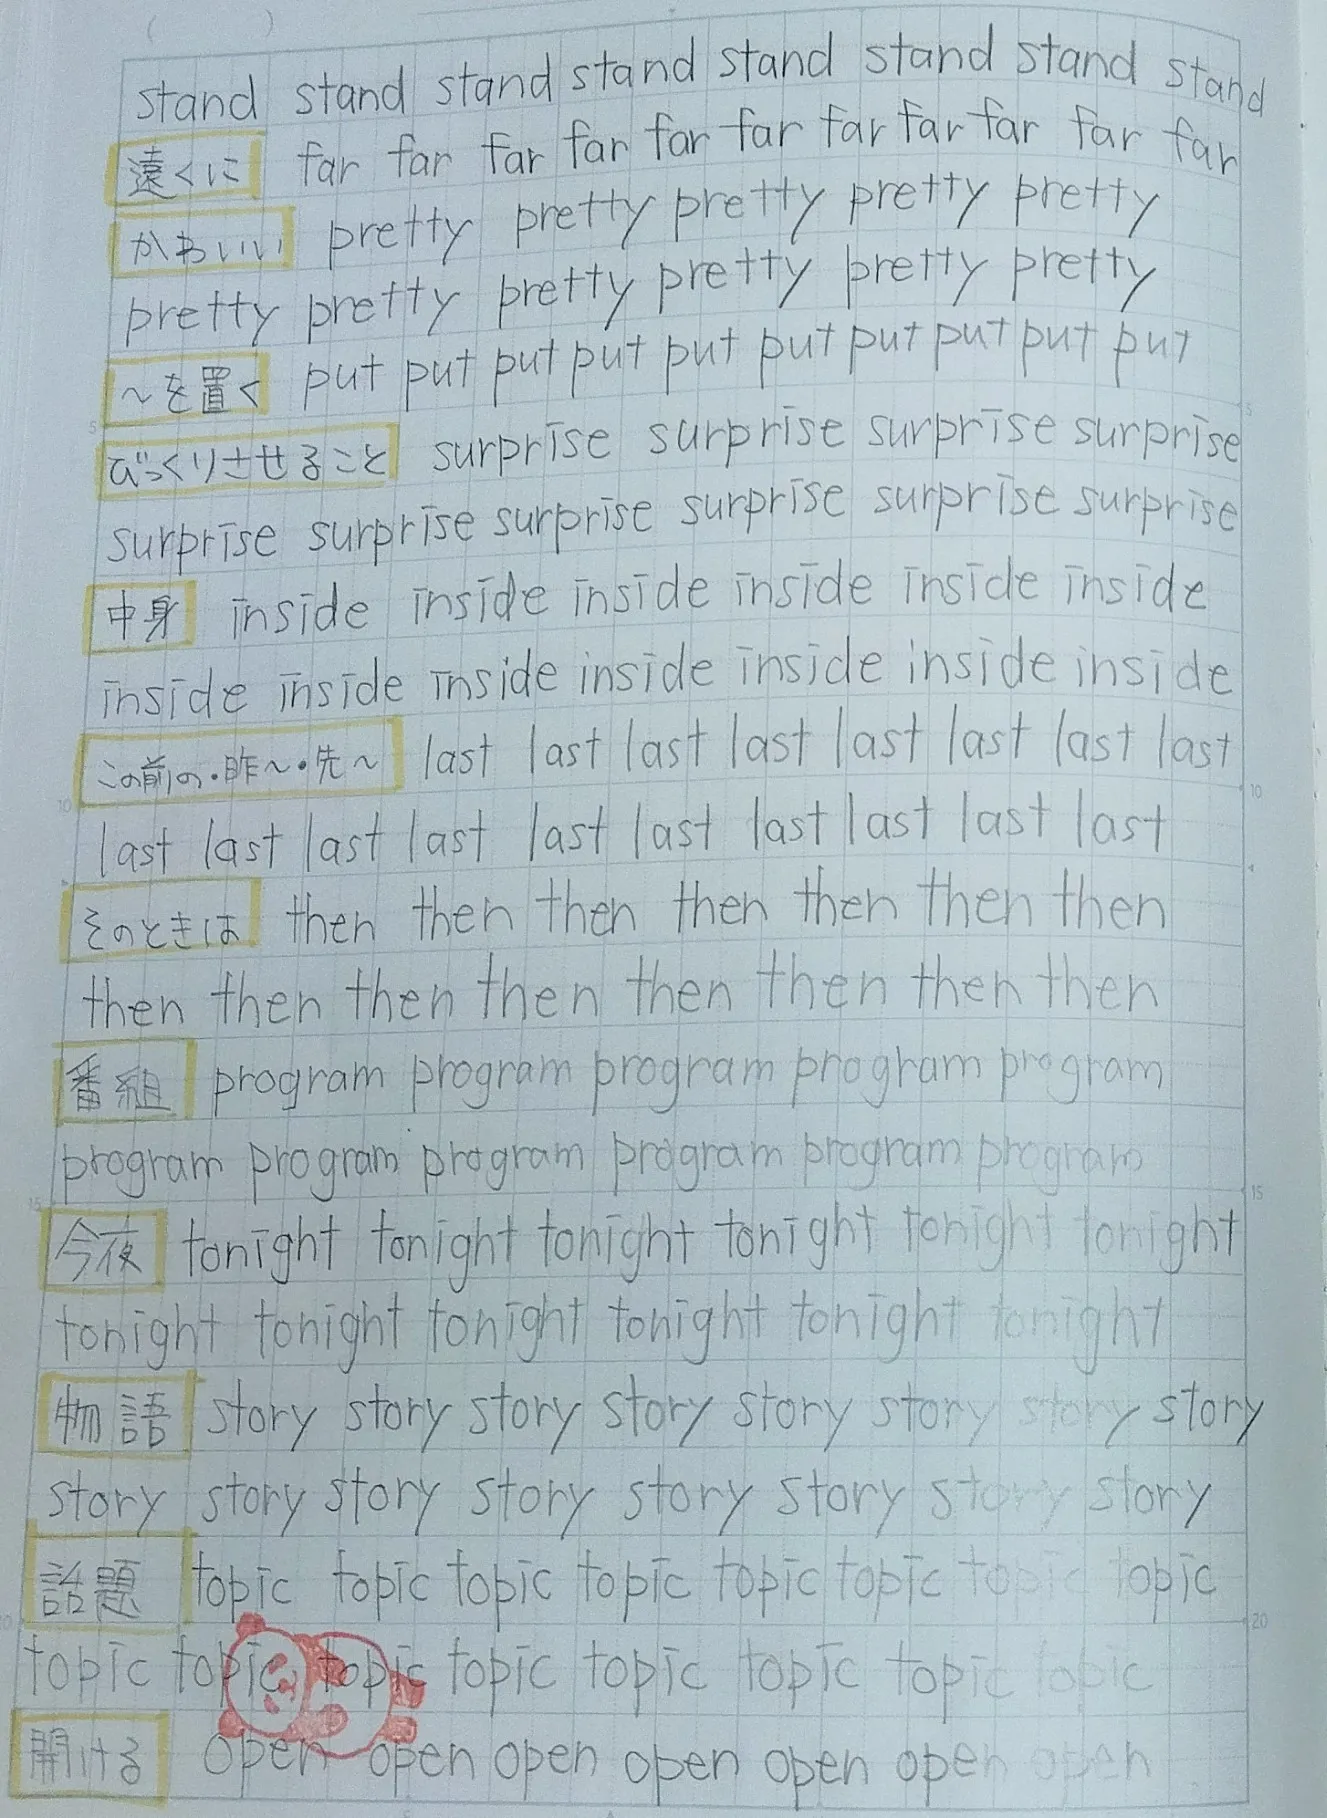 stand stand stand stand stand stand stand stand
遠くに far far far far far far far far far far far
かわいい pretty pretty pretty pretty pretty
pretty pretty pretty pretty pretty pretty
～を置く put put put put put put put put put put
びっくりさせること surprise surprise surprise surprise
surprise surprise surprise surprise surprise surprise
中身 inside inside inside inside inside inside
inside inside inside inside inside inside inside
この前の・昨～・先～ last last last last last last last last
last last last last last last last last last last
そのときは then then then then then then then
then then then then then then then then
番組 program program program program program
program program program program program program
今夜 tonight tonight tonight tonight tonight tonight
tonight tonight tonight tonight tonight tonight
物語 story story story story story story story story
story story story story story story story story
話題 topic topic topic topic topic topic topic topic
topic topic topic topic topic topic topic topic
開ける open open open open open open open
5
5
10
10
15
15
20